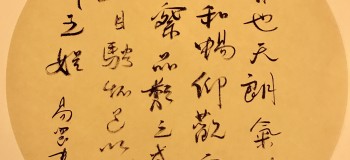 日也天朗氣
和暢仰觀
察品類之盛
目騁懷足以
之娛